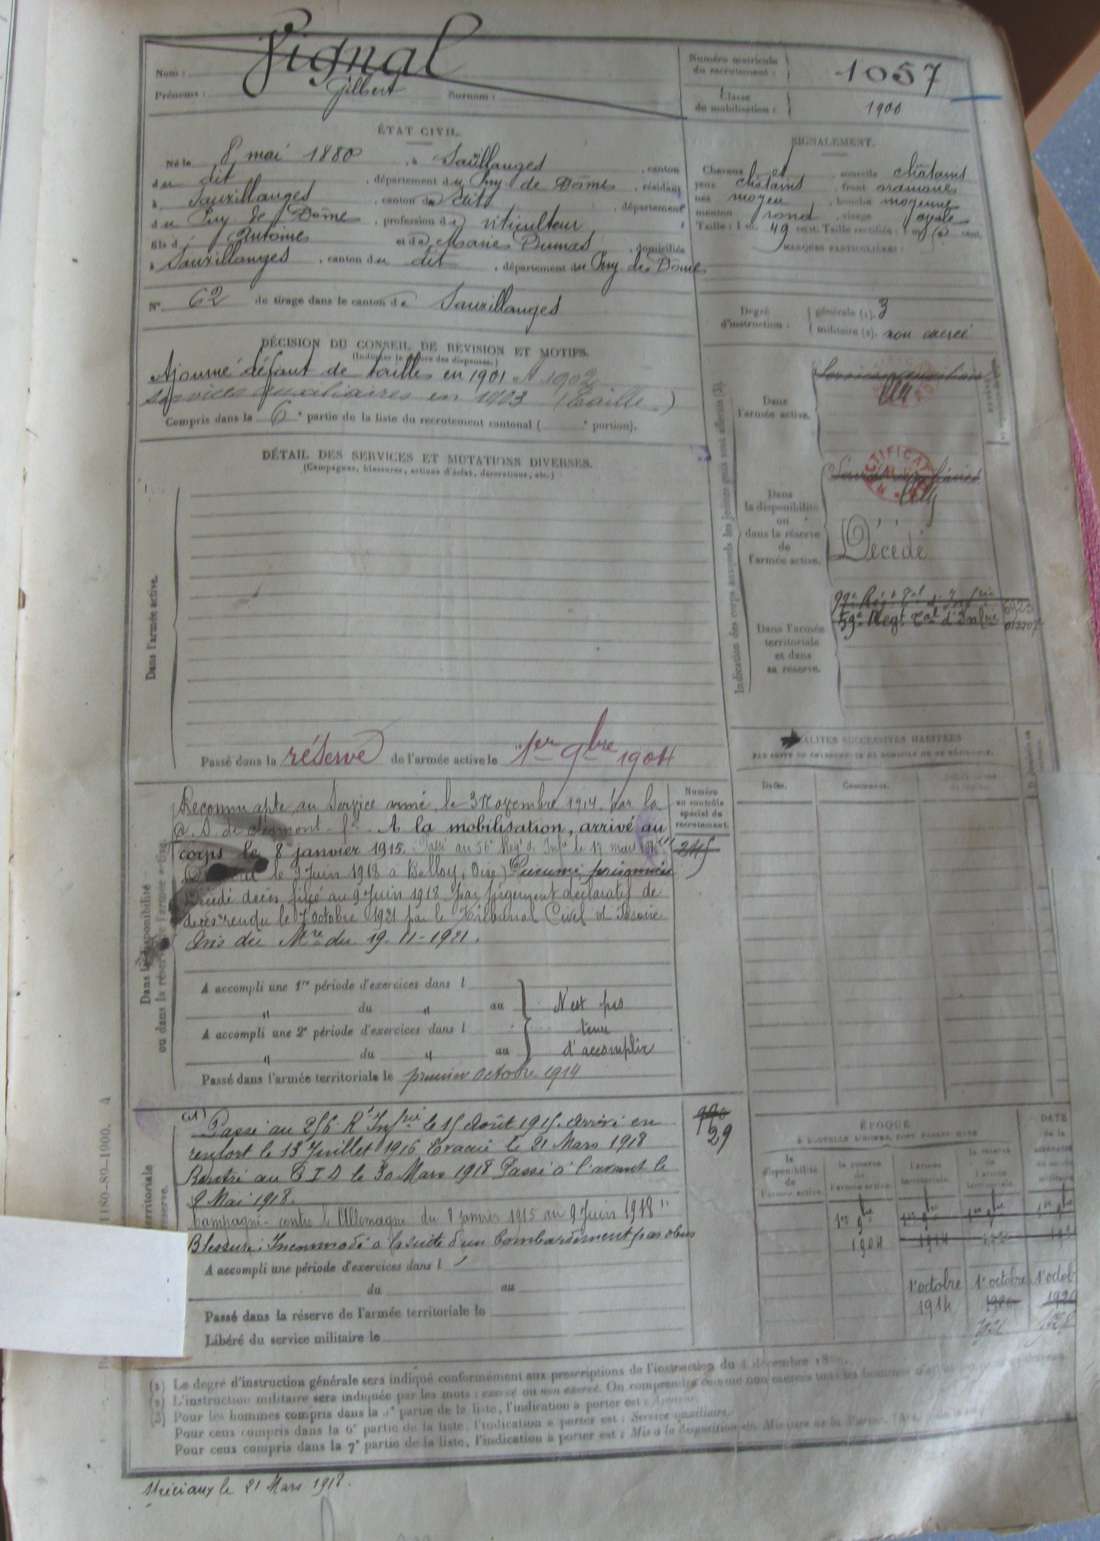 Nom : Vignal
Prénoms : Gilbert Surnom :
Numéro matricule du recrutement : 1057
Classe de mobilisation : 1900
ÉTAT CIVIL.
Né le 8 mai 1880, à Sauxillanges, canton
du dit, département du Puy de Dôme, résidant
à Sauxillanges, canton du dit, département
du Puy de Dôme, profession de viticulteur
fils d' Antoine et de Marie Dumas, domiciliés
à Sauxillanges, canton du dit, département du Puy de Dôme
N° 62 de tirage dans le canton de Sauxillanges
SIGNALEMENT.
Cheveux et sourcils châtains
yeux châtains, front
nez moyen, bouche moyenne
menton rond, visage ovale
Taille : 1 m. 49 cent. Taille rectifiée : 1 m. cent.
MARQUES PARTICULIÈRES :
Degré d'instruction : générale (1). 3
militaire (2). non exercé
DÉCISION DU CONSEIL DE RÉVISION ET MOTIFS.
Ajourné défaut de taille en 1901 et 1902
services auxiliaires en 1903 (Taille)
Compris dans la 6e partie de la liste du recrutement cantonal ( e portion).
DÉTAIL DES SERVICES ET MUTATIONS DIVERSES.
(Campagnes, blessures, actions d'éclat, décorations, etc.)
Dans l'armée active.
Passé dans la réserve de l'armée active le 1er 9bre 1904
Indication des corps auxquels les jeunes gens sont affectés (3).
Dans l'armée active.
Dans la disponibilité ou dans la réserve de l'armée active.
Décédé
Dans l'armée territoriale et dans sa réserve.
99e Régt Tal d'Infrie
59e Régt Tal d'Infrie
LOCALITÉS SUCCESSIVES HABITÉES
PAR SUITE DE CHANGEMENT DE DOMICILE OU DE RÉSIDENCE.
Dates. Communes.
Dans la disponibilité ou dans la réserve de l'armée active.
Numéro au contrôle spécial du recrutement.
245
Reconnu apte au Service armé le 3 Novembre 1914 par la
C. R. de Clermont-Fd. A la mobilisation, arrivé au
corps le 8 janvier 1915. Passé au 56e Régt d'Infie le 17 mars 1915
le 9 Juin 1918 à Belloy, Oise. Présumé prisonnier
Décédé décès fixé au 9 Juin 1918 par jugement déclaratif de
décès rendu le 7 octobre 1921 par le Tribunal Civil d'Issoire
Avis du Mre du 19-11-1921.
A accompli une 1re période d'exercices dans l
du au
A accompli une 2e période d'exercices dans l
du au
N'est pas
tenu
d'accomplir
Passé dans l'armée territoriale le premier octobre 1914
(A) Passé au 256 Rt Infrie le 15 Août 1915. Arrivé en
renfort le 13 Juillet 1916. Evacué le 21 Mars 1918
Rentré au C I D le 30 Mars 1918 Passé à l'avant le
8 Mai 1918.
Campagne contre l'Allemagne du 8 janvier 1915 au 9 Juin 1918
Blessure : Incommodé à la suite d'un bombardement par obus
29
A accompli une période d'exercices dans l
du au
Passé dans la réserve de l'armée territoriale le
Libéré du service militaire le
ÉPOQUE
À LAQUELLE L'HOMME DOIT PASSER DANS
la disponibilité de l'armée active. la réserve de l'armée active. l'armée territoriale. la réserve de l'armée territoriale.
DATE de la libération du service militaire
1er 9bre 1904
1er octobre 1914
1er octobre 1920
1er octob 1926
(1) Le degré d'instruction générale sera indiqué conformément aux prescriptions de l'instruction du 4 décembre
(2) L'instruction militaire sera indiquée par les mots : exercé ou non exercé.
(3) Pour les hommes compris dans la partie de la liste, l'indication à porter est :
Pour ceux compris dans la 6e partie de la liste, l'indication à porter est : Service auxiliaire.
Pour ceux compris dans la 7e partie de la liste, l'indication à porter est : Mis à la disposition du Ministre de la Guerre.
le 21 Mars 1918.